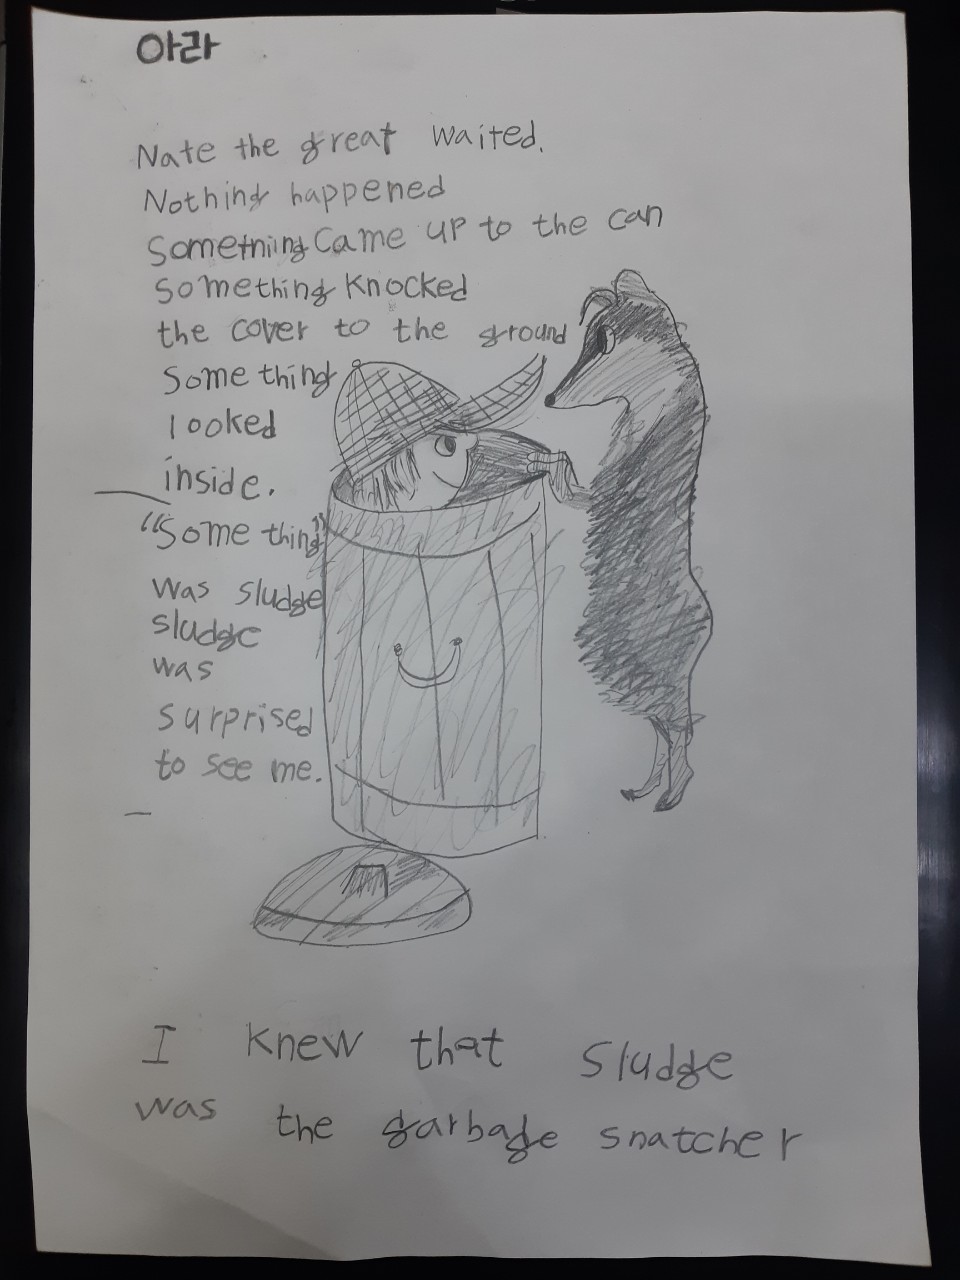 아라
Nate the great waited.
Nothing happened
Something Came up to the can
Something knocked
the cover to the ground
Something
looked
inside.
"Some thing"
was sludge
sludge
was
surprised
to see me.
I knew that Sludge
was the garbage snatcher